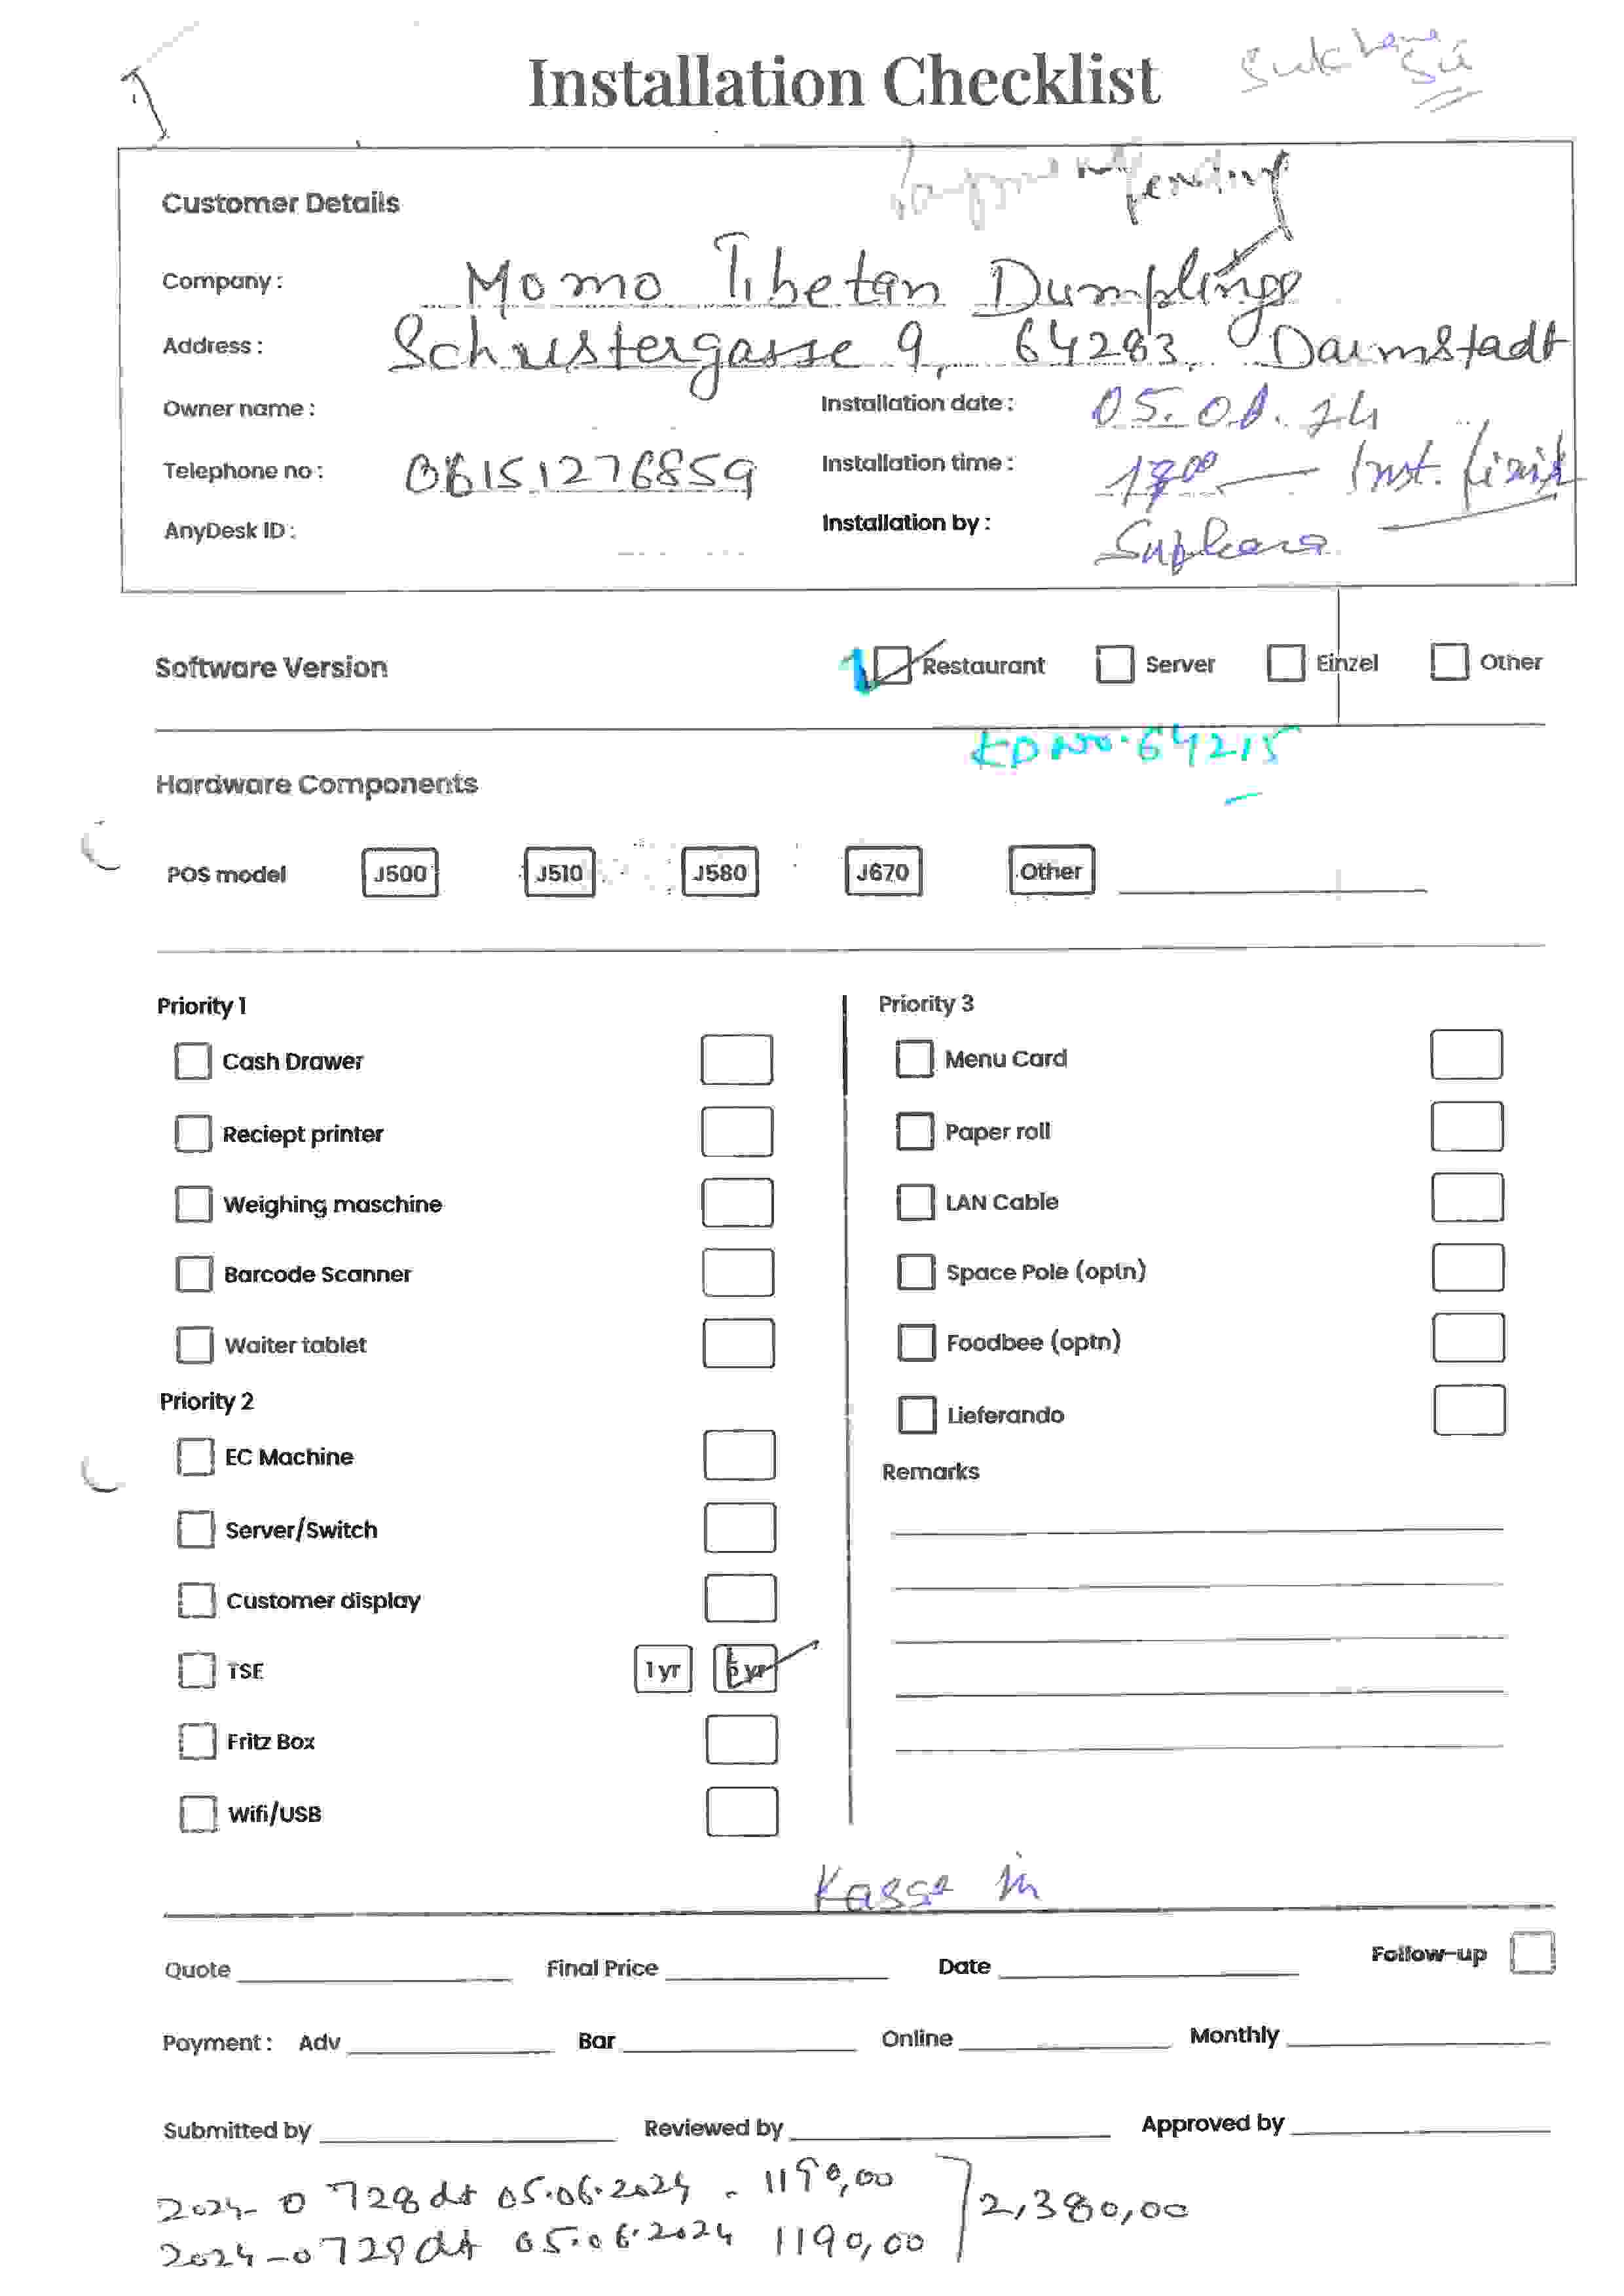 Installation Checklist
Payment pending
Customer Details
Company : Momo Tibetan Dumplings
Address : Schustergasse 9, 64283, Darmstadt
Owner name :
Installation date : 05.08.24
Telephone no : 06151276859
Installation time :
AnyDesk ID :
Installation by :
Software Version Restaurant Server Einzel Other
KD No. 64215
Hardware Components
POS model J500 J510 J580 J670 Other
Priority 1
Cash Drawer
Reciept printer
Weighing maschine
Barcode Scanner
Waiter tablet
Priority 2
EC Machine
Server/Switch
Customer display
TSE 1 yr 5 yr
Fritz Box
Wifi/USB
Priority 3
Menu Card
Paper roll
LAN Cable
Space Pole (optn)
Foodbee (optn)
Lieferando
Remarks
Kasse in
Quote Final Price Date Follow-up
Payment : Adv Bar Online Monthly
Submitted by Reviewed by Approved by
2024-0728 dt 05.06.2024 - 1190,00
2024-0729 dt 05.06.2024 1190,00
2,380,00